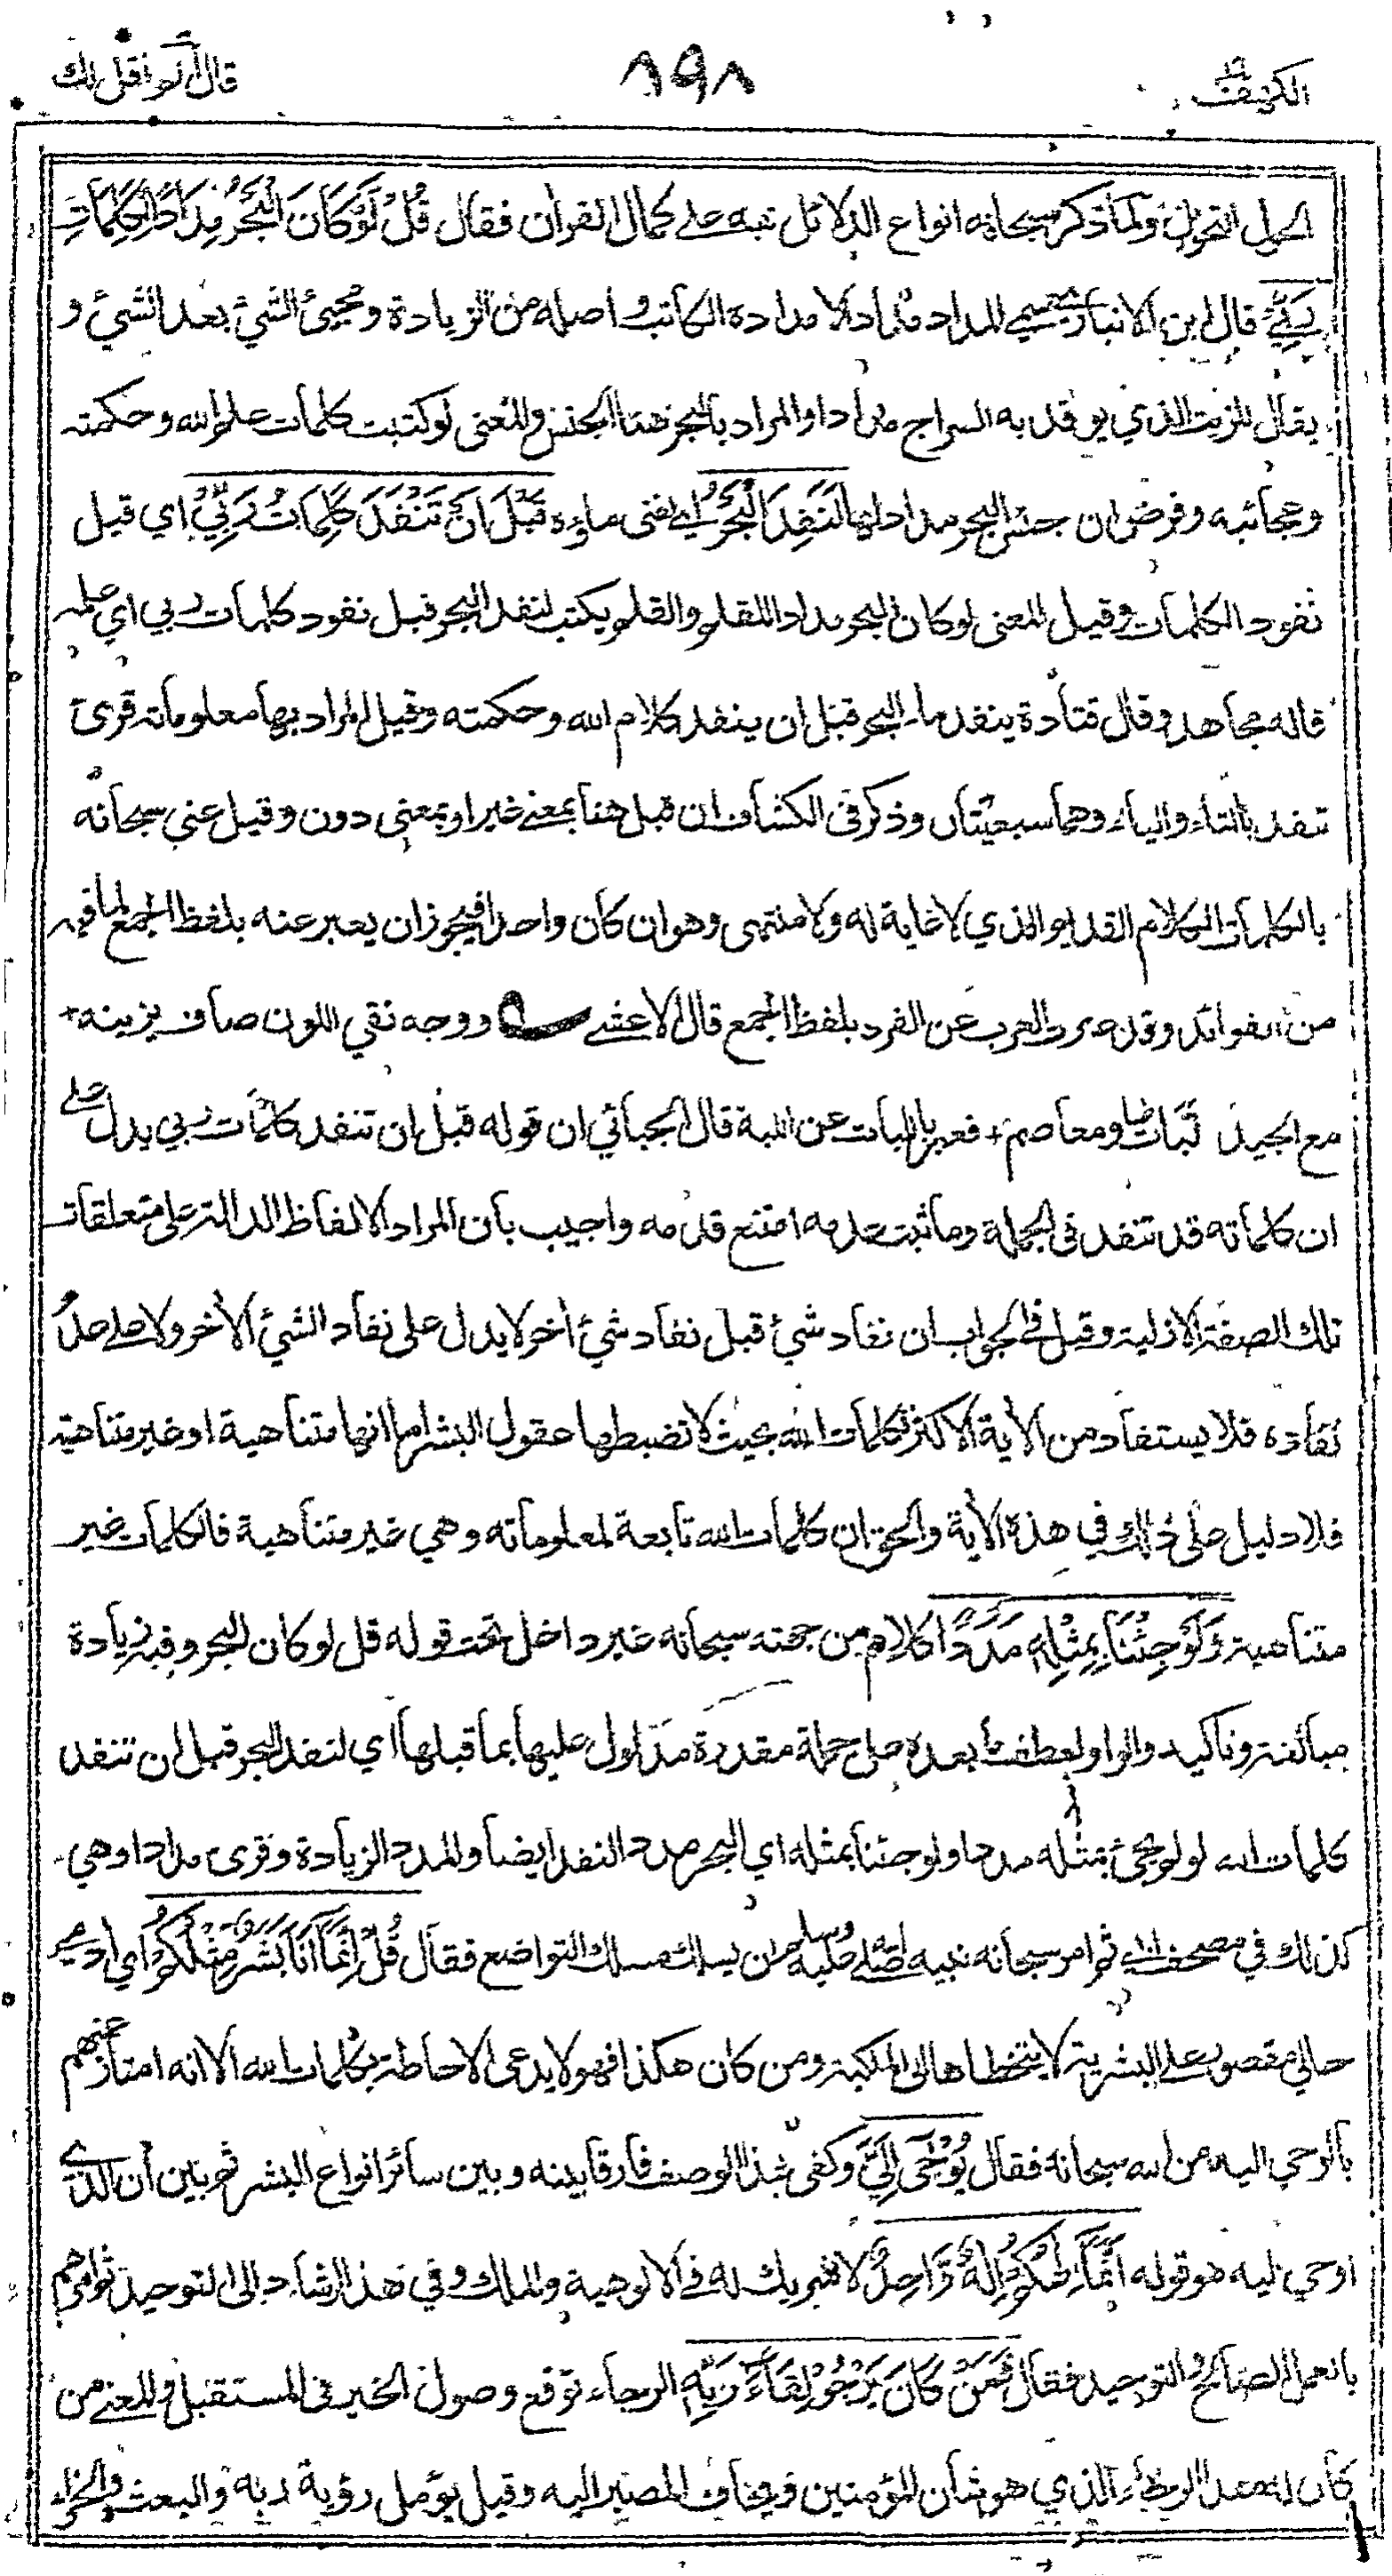 الكهف ١٨
٨٩٨
قال ألم اقل لك
الحول التحول ولما ذكر سبحانه انواع الدلائل نبه على كمال القران فقال قُلْ لَّوْ كَانَ الْبَحْرُ مِدَادًا لِّكَلِمَاتِ
رَبِّيْ قال ابن الانباري سمي المداد مدادا لامداده الكاتب واصله من الزيادة ومجيئ الشيئ بعد الشيئ و
يقال للزيت الذي يوقد به السراج مدادا والمراد بالبحر هنا الجنس والمعنى لو كتبت كلمات علم الله وحكمته
وعجائبه وفرض ان جنس البحر مدادلها لَنَفِدَ الْبَحْرُ اي لفنى ماؤه قَبْلَ اَنْ تَنْفَدَ كَلِمَاتُ رَبِّيْ اي قبل
نفود الكلمات وقيل المعنى لو كان البحر مدادا للقلم والقلم يكتب لنفد البحر قبل نفود كلمات ربي اي علمه
قاله مجاهد وقال قتادة ينفد ماء البحر قبل ان ينفد كلام الله وحكمته وقيل المراد بها معلوماته قرئ
تنفد بالتاء والياء وهما سبعيتان وذكر في الكشاف ان قبل هنا بمعنى غير او بمعنى دون وقيل عنى سبحانه
بالكلمات الكلام القديم الذي لا غاية له ولا منتهى وهو ان كان واحدا فيجوز ان يعبر عنه بلفظ الجمع لما فيه
من الفوائد وقد عبرت العرب عن الفرد بلفظ الجمع قال الاعشى ووجه نقي اللون صاف يزينه +
مع الجيد لبات لها ومعاصم + فعبر باللبات عن اللبة قال الجبائي ان قوله قبل ان تنفد كلمات ربي يدل على
ان كلماته قد تنفد في الجملة وما ثبت عدمه امتنع قدمه واجيب بأن المراد الالفاظ الدالة على متعلقات
تلك الصفة الازلية وقيل في الجواب ان نفاد شيئ قبل نفاد شيئ أخر لا يدل على نفاد الشيئ الأخر ولا على عدم
نفاده فلا يستفاد من الأية الا كثرة كلمات الله بحيث لا تضبطها عقول البشر اما انها متناهية او غير متناهية
فلا دليل على ذلك في هذه الأية والحق ان كلمات الله تابعة لمعلوماته وهي غير متناهية فالكلمات غير
متناهية وَلَوْ جِئْنَا بِمِثْلِهٖ مَدَدًا كلام من جهته سبحانه غير داخل تحت قوله قل لو كان البحر وفيه زيادة
مبالغة وتأكيد والواو لعطف ما بعده على جملة مقدرة مدلول عليها بما قبلها أي لنفد البحر قبل ان تنفد
كلمات الله لو لم يجئ بمثله مددا ولو جئنا بمثله اي البحر مددا لنفد ايضا والمدد الزيادة وقرى مدادا وهي
كذلك في مصحف ابي ثم امر سبحانه نبيه صلى الله عليه وسلم ان يسلك مسلك التواضع فقال قُلْ اِنَّمَا اَنَا بَشَرٌ مِّثْلُكُمْ أي ان
حالي مقصور على البشرية لا يتخطاها الى الملكية ومن كان هكذا فهو لا يدعى الاحاطة بكلمات الله الا انه امتاز عنهم
بالوحي اليه من الله سبحانه فقال يُوْحٰى اِلَيَّ وكفى بهذا الوصف فارقا بينه وبين سائر انواع البشر ثم بين أن الذي
اوحي اليه هو قوله اَنَّمَا اِلٰهُكُمْ اِلٰهٌ وَّاحِدٌ لا شريك له في الالوهية والملك وفي هذا ارشاد الى التوحيد ثم امرهم
بالعمل الصالح والتوحيد فقال فَمَنْ كَانَ يَرْجُوْ لِقَاءَ رَبِّهٖ الرجاء توقع وصول الخير في المستقبل والمعنى من
كان له هذا الرجاء الذي هو شأن المؤمنين او يخاف المصير اليه وقيل يؤمل رؤية ربه والبعث والجزاء